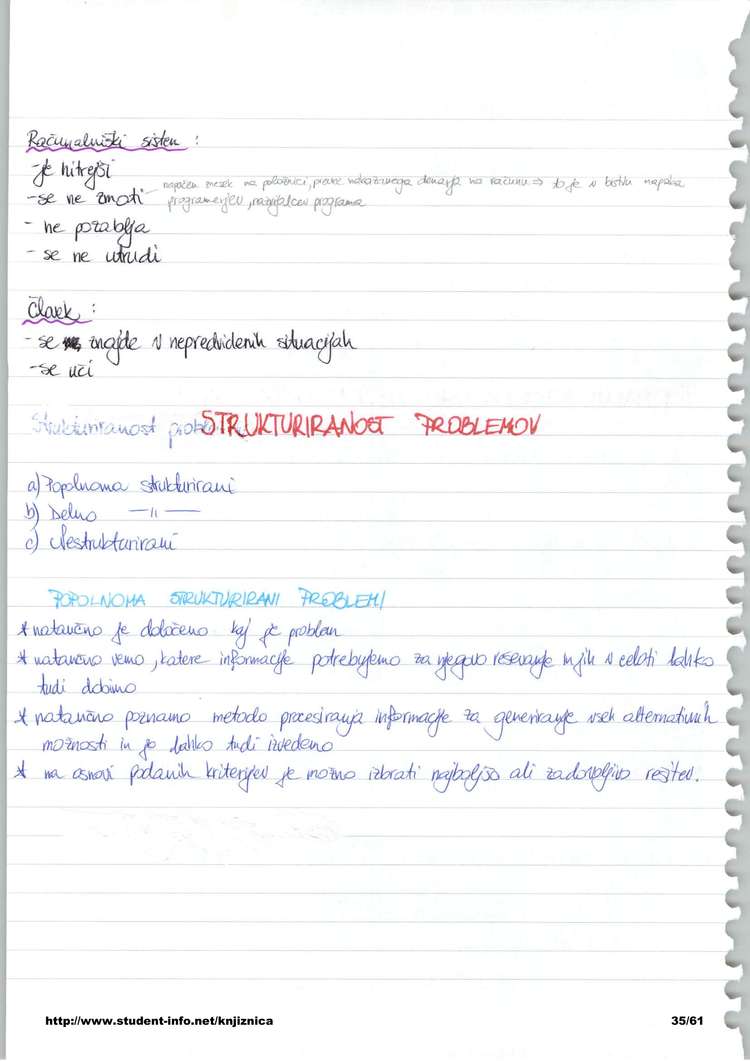 Računalniški sistem :
- je hitrejši
napačen znesek na položnici, preveč nakazanega denarja na računu => to je v bistvu napaka
- se ne zmoti
programerjev,              programa
- ne pozablja
- se ne utrudi
Človek :
- se znajde v nepredvidenih situacijah
- se uči
Strukturiranost probl STRUKTURIRANOST PROBLEMOV
a) Popolnoma strukturirani
b) Delno —11—
c) Nestrukturirani
POPOLNOMA STRUKTURIRANI PROBLEMI
* natančno je določeno kaj je problem
* natančno vemo, katere informacije potrebujemo za njegovo reševanje in jih v celoti lahko
tudi dobimo
* natančno poznamo metodo procesiranja informacije za generiranje vseh alternativnih
možnosti in jo lahko tudi izvedemo
* na osnovi podanih kriterijev je možno izbrati najboljšo ali zadovoljivo rešitev.
http://www.student-info.net/knjiznica
35/61